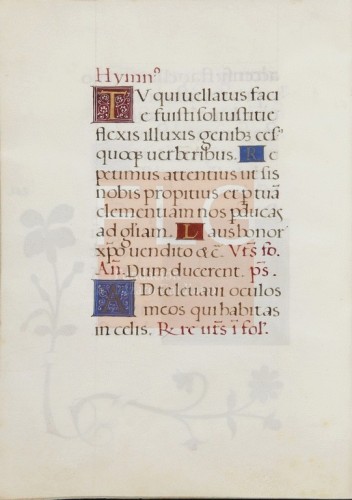 Hymn⁹
TV qui uellatus faci
e fuisti sol iustitie
flexis illuxis genib⁹ ces⁹
quoq; uerberibus. Re
petimus attentius ut sis
nobis propitius et p tuā
clementiam nos pducas
ad gliam. Laus honor
xp̄o uendito & c̄. Vr̄s fo.
An̄. Dum ducerent. ps̄.
AD te leuaui oculos
meos qui habitas
in celis. R. re ur̄s ī fol.